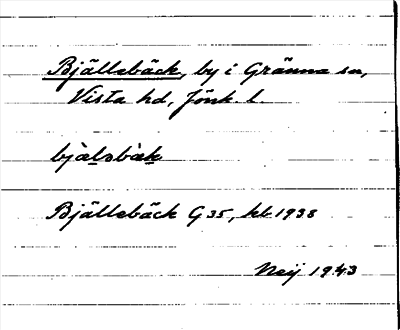 Bjällebäck, by i Gränna sn,
Vista hd, Jönk. l.
bjälsbäk
Bjällebäck G 35, kb 1938
Neij 1943